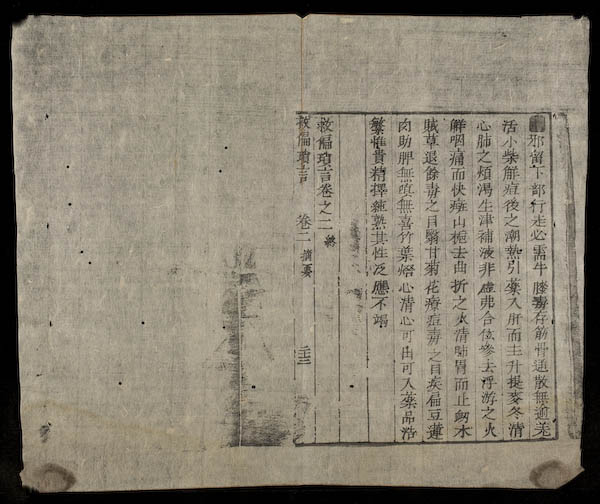 邪留下部行走必需牛膝毒存筋骨通散無過羌
活小柴解痘後之潮熱引藥入肝而主升提麥冬清
心肺之煩渴生津補液非虛弗合參去浮游之火
解咽痛而快痰山梔去曲折之火清肺胃而止衂木
賊草退餘毒之目翳甘菊花療痘毒之目疾扁豆蓮
肉助脾無嗔無喜竹葉心清心可由可入藥品浩
繁惟貴精擇純熟其性泛應不竭
救偏瑣言卷之二終
救偏瑣言 卷二 摘要